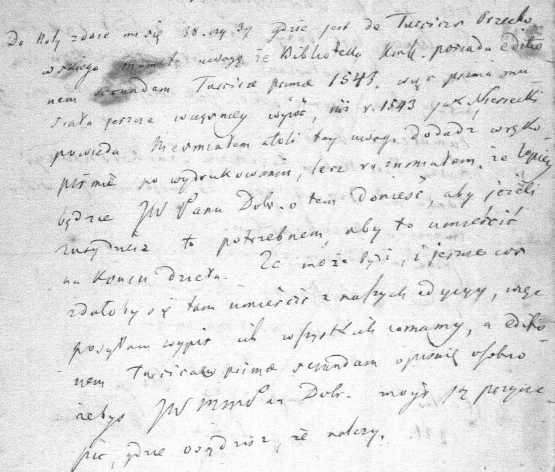 Do Noty zdaie mi się 38. czy 39 gdzie jest do Turcicæ Orzecho
wskiego uwagę że Biblioteka Krak. posiada editio
nem secundam Turcicæ primæ 1543. więc prima mu
siała jeszcze wcześniey wyiść, niż r. 1543 jak Niesiecki
powiada. Nieśmiałem atoli tey uwagi dodadź wręko
piśmie po wydrukowaniu, lecz rozumiałem, że lepiey
będzie JW Panu Dobr. o tem donieść, aby jeżeli
to potrzebnem aby to umieścić
na końcu dzieła. Że może być, i jeszcze co
zdałoby się tam umieścić z naszych edycyy, więc
posyłam wypis ich wszystkich iak mamy, a editio
nem Turcicæ primæ secundam opisuię osobno
żebyś JW Pan Dobr. mógł ją przycze
pić, gdzie osądzisz, że należy.